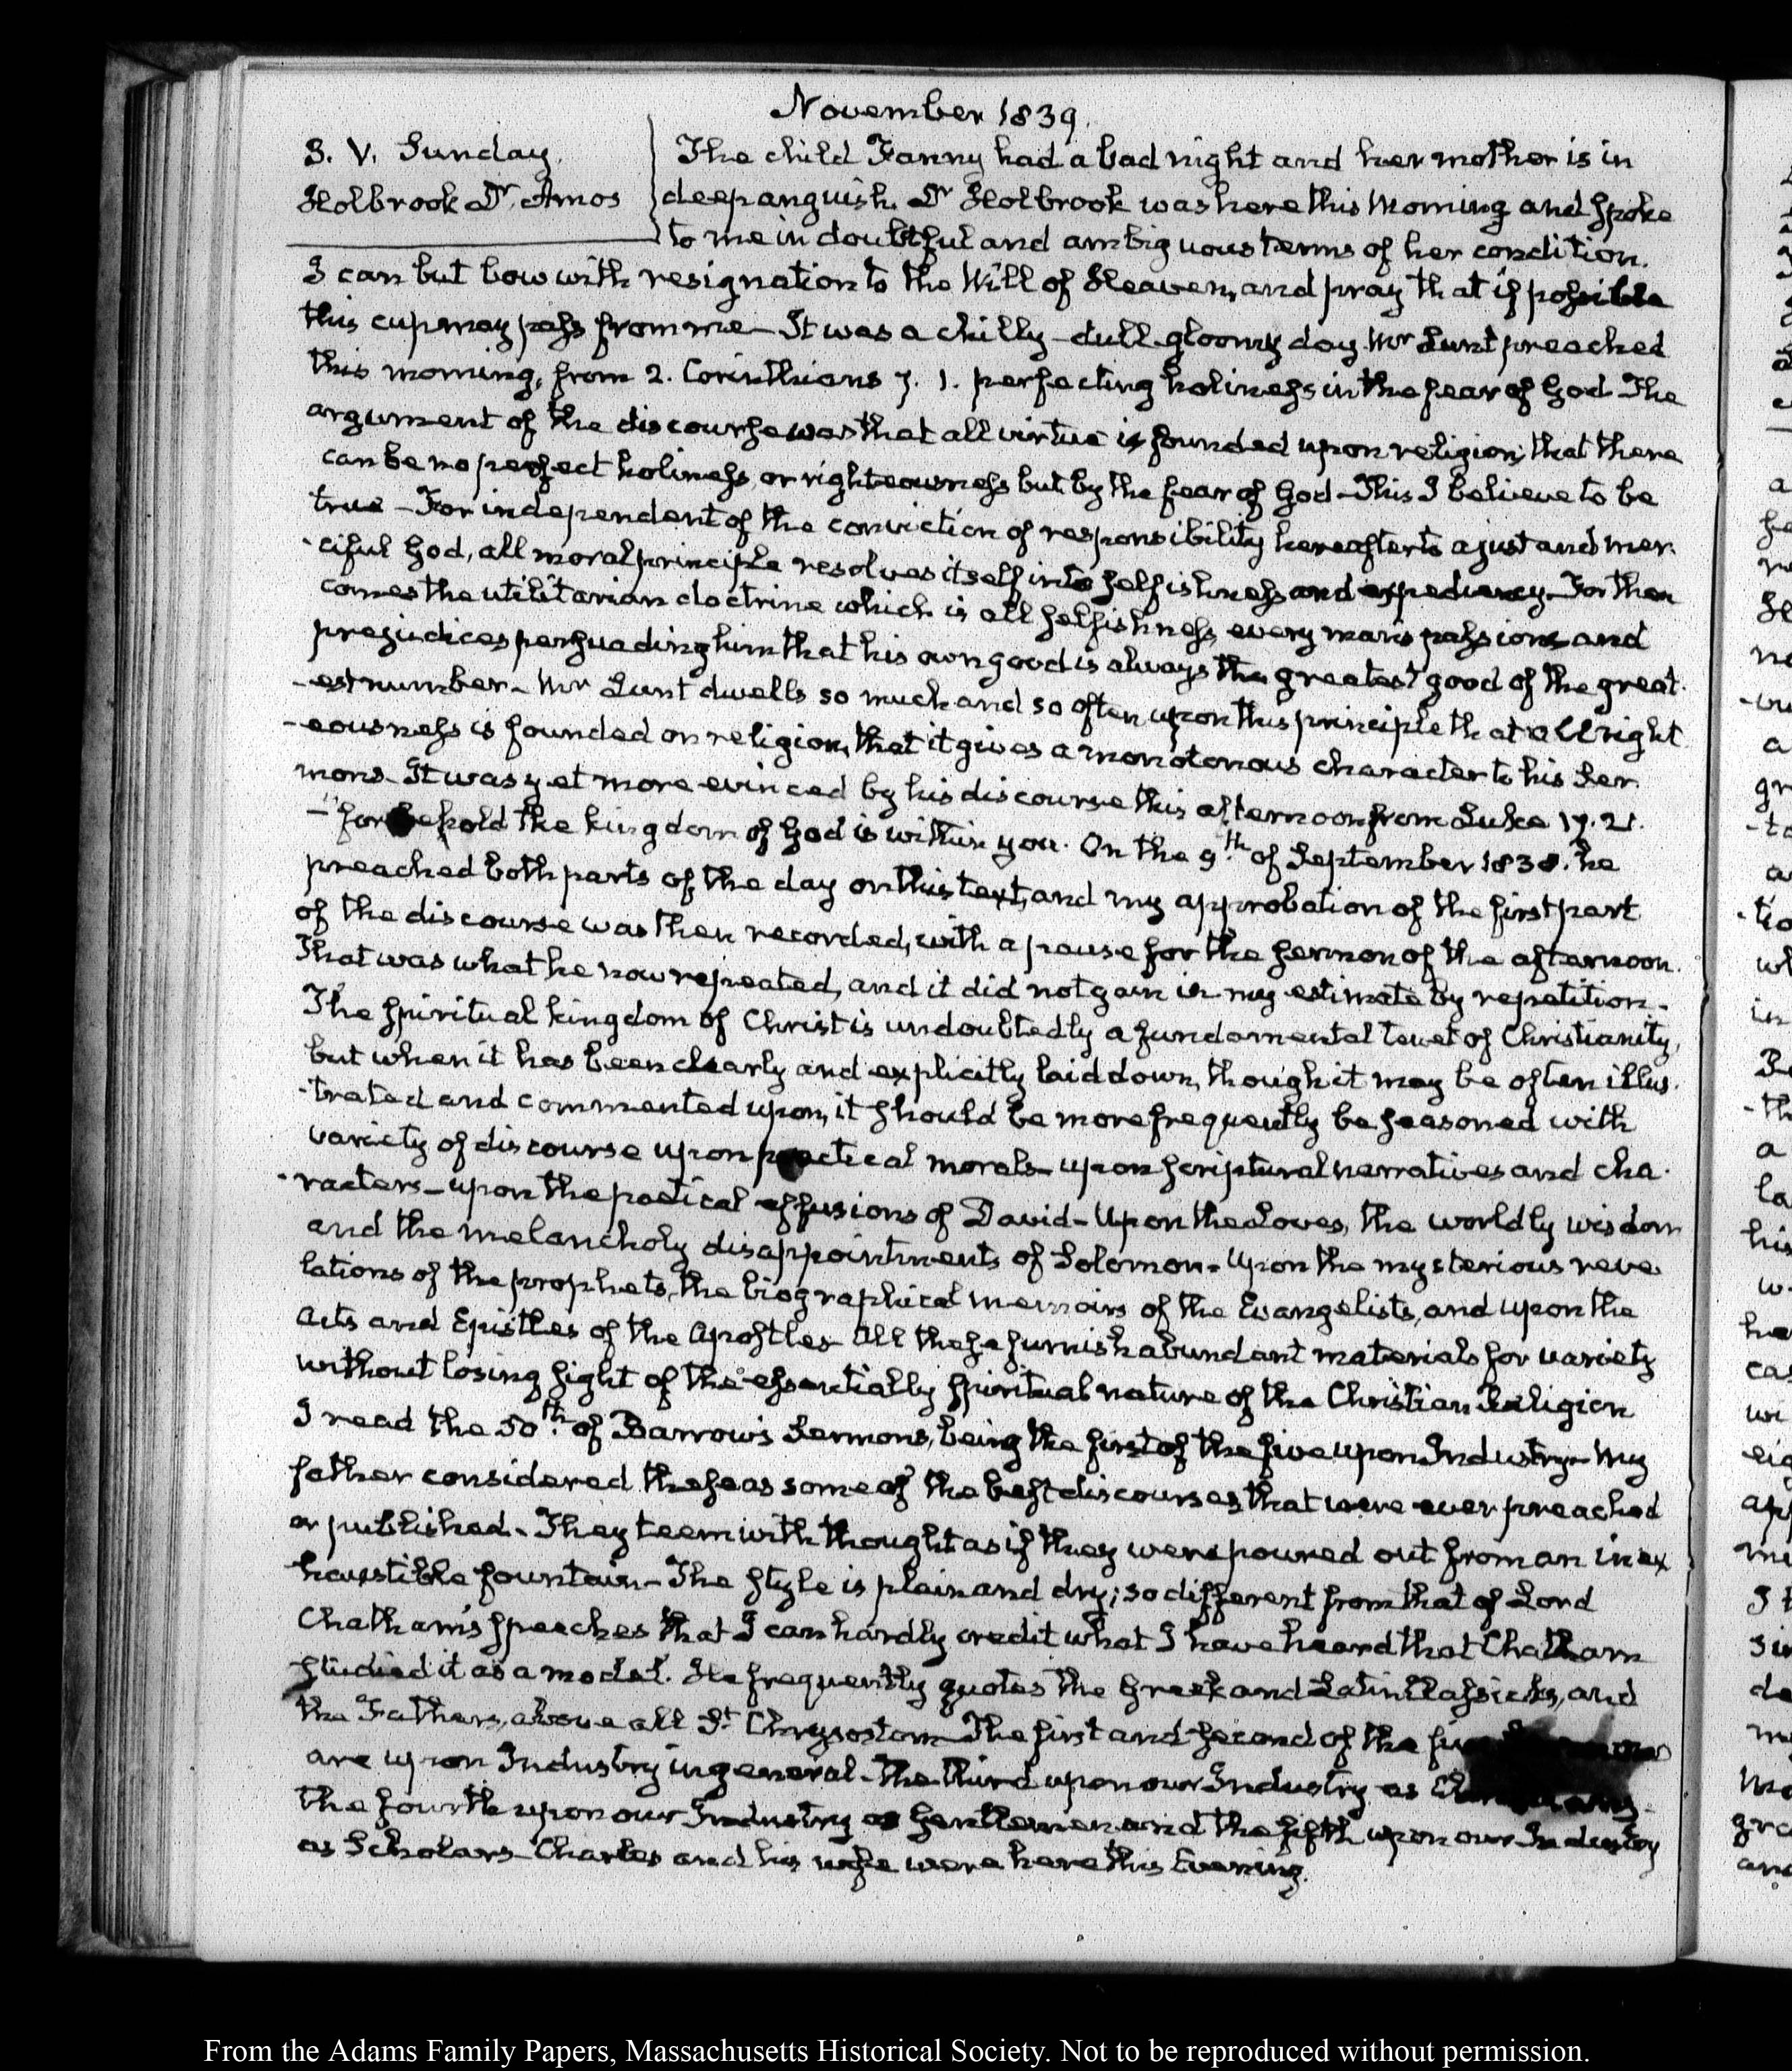 November 1839.
3. V. Sunday.
Holbrook Dr. Amos
The child Fanny had a bad night and her mother is in
deep anguish. Dr Holbrook was here this Morning and spoke
to me in doubtful and ambiguous terms of her condition.
I can but bow with resignation to the Will of Heaven, and pray that if possible
this cup may pass from me— It was a chilly-dull-gloomy day. Mr Lunt preached
this morning, from 2. Corinthians 7. 1. perfecting holiness in the fear of God. The
argument of the discourse was that all virtue is founded upon religion; that there
can be no perfect holiness, or righteousness but by the fear of God—This I believe to be
true—For independent of the conviction of responsibility hereafter to a just and mer-
-ciful God, all moral principle resolves itself into selfishness and expediency—For then
comes the utilitarian doctrine which is all selfishness, every man's passions and
prejudices persuading him that his own good is always the greatest good of the great-
-est number—Mr Lunt dwells so much and so often upon this principle that all right-
-eousness is founded on religion, that it gives a monotonous character to his Ser-
mons—It was yet more evinced by his discourse this afternoon from Luke 17. 21.
—"for behold the kingdom of God is within you. On the 9th. of September 1838. he
preached both parts of the day on this text, and my approbation of the first part
of the discourse was then recorded, with a pause for the sermon of the afternoon.
That was what he now repeated, and it did not gain in my estimate by repetition—
The spiritual kingdom of Christ is undoubtedly a fundamental tenet of Christianity,
but when it has been clearly and explicitly laid down, though it may be often illus-
-trated and commented upon, it should be more frequently be seasoned with
variety of discourse upon practical morals—upon scriptural narratives and cha-
-racters—upon the poetical effusions of David—Upon the Loves, the worldly wisdom
and the melancholy disappointments of Solomon—Upon the mysterious reve-
lations of the prophets, the biographical memoirs of the Evangelists, and upon the
Acts and Epistles of the Apostles—All these furnish abundant materials for variety
without losing sight of the essentially spiritual nature of the Christian Religion
I read the 50th. of Barrow's Sermons, being the first of the five upon Industry—My
father considered these as some of the best discourses that were ever preached
or published—They teem with thought as if they were poured out from an inex
haustible fountain—The style is plain and dry; so different from that of Lord
Chatham's speeches that I can hardly credit what I have heard that Chatham
studied it as a model. He frequently quotes the Greek and Latin Classicks, and
the Fathers, above all St Chrysostom—The first and second of the
are upon Industry in general—The third upon our Industry as
the fourth upon our Industry as Gentlemen and the fifth upon our Industry
as Scholars—Charles and his wife were here this Evening.
From the Adams Family Papers, Massachusetts Historical Society. Not to be reproduced without permission.